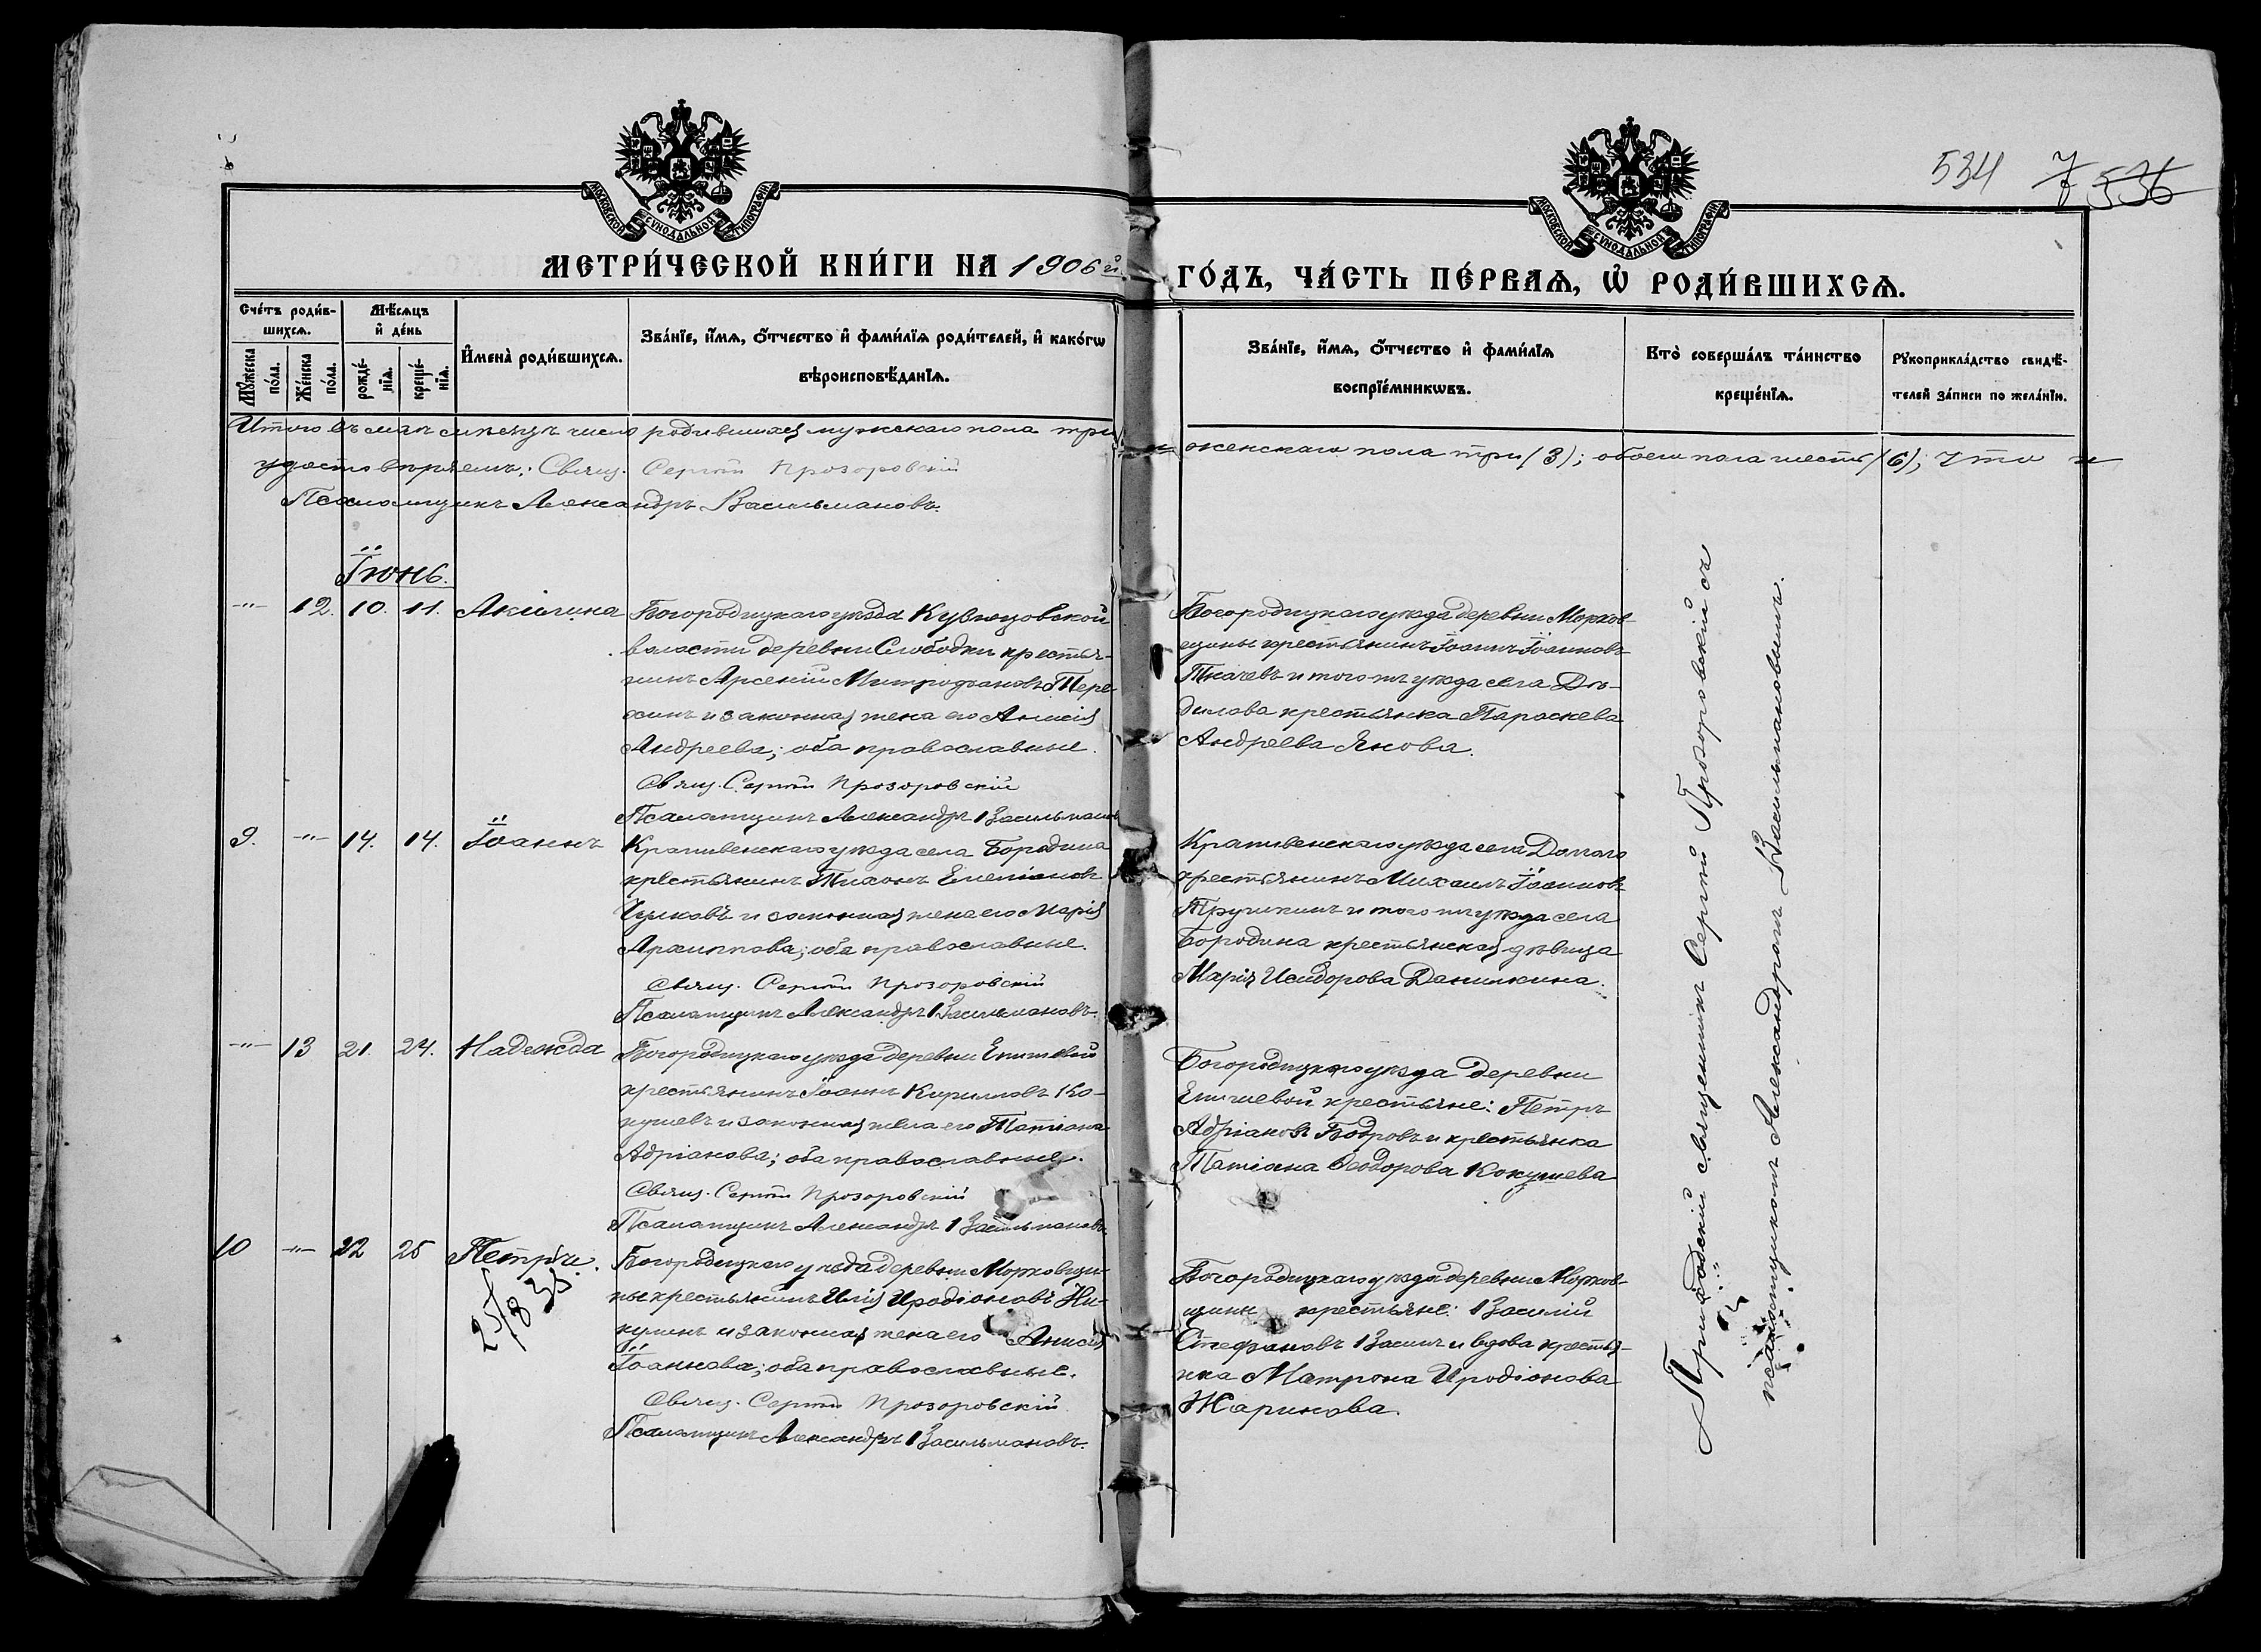 534 7 536
МОСКОВСКОЙ СУНОДАЛЬНОЙ ТИПОГРАФІИ
МОСКОВСКОЙ СУНОДАЛЬНОЙ ТИПОГРАФІИ
МЕТРИ́ЧЕСКОЙ КНИ́ГИ НА 1906й ГО́ДЪ, ЧА́СТЬ ПЕ́РВАѦ, Ѡ҆ РОДИ́ВШИХСѦ.
Сче́тъ роди́в-
шихсѧ.
Мꙋ́жеска по́ла.
Же́нска по́ла.
Мѣ́сѧцъ
и҆ де́нь
рожде́-
нїѧ.
креще́-
нїѧ.
И҆мена̀ роди́вшихсѧ.
Зва́нїе, и҆́мѧ, ѻ҆́тчество и҆ фами́лїѧ роди́телей, и҆ како́гѡ
вѣроисповѣ́данїѧ.
Зва́нїе, и҆́мѧ, ѻ҆́тчество и҆ фами́лїѧ
воспрїе́мникѡвъ.
Кто̀ соверша́лъ та́инство
креще́нїѧ.
Рꙋкоприкла́дство свидѣ́-
телей за́писи по жела́нїю.
Итого въ маѣ мѣсяцѣ число родившихся мужскаго пола три женскаго пола три (3); обоего пола шесть (6); что и
удостовѣряемъ: Свящ. Сергій Прозоровскій
Псаломщикъ Александръ Васильмановъ.
Іюнь.
-"- 12. 10. 11. Акилина
Богородицкаго уѣзда Кузнецовской
волости деревни Слободки крестья-
нинъ Арсеній Митрофановъ Тере-
хинъ и законная жена его Анисія
Андреева; оба православные.
Свящ. Сергій Прозоровскій
Псаломщикъ Александръ Васильманов
Богородицкаго уѣзда деревни Морков-
щины крестьянинъ Іоаннъ Іоанновъ
Ткачевъ и того-же уѣзда села Дѣ-
дилова крестьянка Параскева
Андреева Янова.
9. -"- 14. 14. Іоаннъ
Крапивенскаго уѣзда села Бородина
крестьянинъ Тихонъ Емеліановъ
Чулковъ и законная жена его Марія
Архиппова; оба православные.
Свящ. Сергій Прозоровскій
Псаломщикъ Александръ Васильмановъ.
Крапивенскаго уѣзда села Долгаго
крестьянинъ Михаилъ Іоанновъ
Трушкинъ и того-же уѣзда села
Бородина крестьянская дѣвица
Марія Исидорова Данилкина.
-"- 13 21. 24. Надежда
Богородицкаго уѣзда деревни
крестьянинъ Іоаннъ Кириловъ Ко-
кушевъ и законная жена его Татіана
Адріанова; оба православные.
Свящ. Сергій Прозоровскій
Псаломщикъ Александръ Васильмановъ
Богородицкаго уѣзда деревни
крестьяне: Петръ
Адріановъ Бобровъ и крестьянка
Татіана Ѳеодорова Кокушева
10 -"- 22 25 Петръ.
25/8 35
Богородицкаго уѣзда деревни Морковщи-
ны крестьянинъ Илія Иродіоновъ Ни-
кулинъ и законная жена его Анисія
Іоаннова; оба православные.
Свящ. Сергій Прозоровскій
Псаломщикъ Александръ Васильмановъ.
Богородицкаго уѣзда деревни Морков-
щины крестьяне: Василій
Стефановъ и вдова крестья-
нка Матрона Иродіонова
Жаринова.
Приходскій священникъ Сергій Прозоровскій съ
псаломщикомъ Александромъ Васильмановымъ.